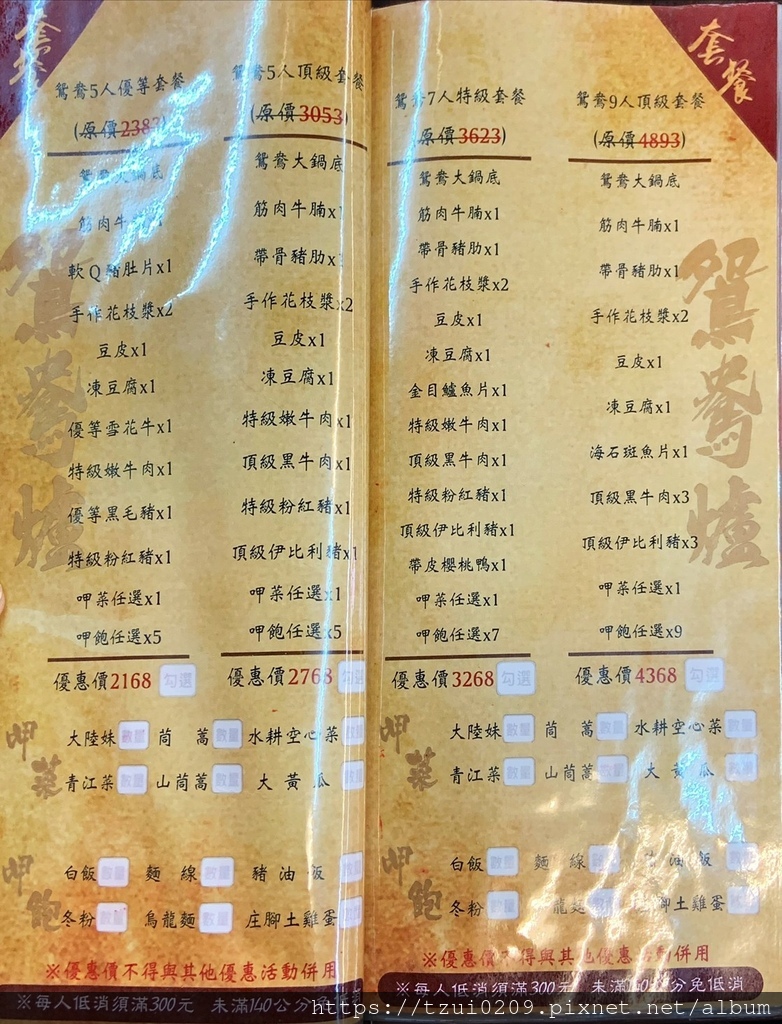 套餐
鴛鴦5人優等套餐
(原價2383)
鴛鴦大鍋底
筋肉牛
軟Q豬肚片x1
手作花枝漿x2
豆皮x1
凍豆腐x1
優等雪花牛x1
特級嫩牛肉x1
優等黑毛豬x1
特級粉紅豬x1
呷菜任選x1
呷飽任選x5
優惠價2168 勾選
鴛鴦5人頂級套餐
(原價3053)
鴛鴦大鍋底
筋肉牛腩x1
帶骨豬肋x
手作花枝漿x2
豆皮x1
凍豆腐x1
特級嫩牛肉x1
頂級黑牛肉x1
特級粉紅豬x1
頂級伊比利豬x1
呷菜任選x1
呷飽任選x5
優惠價2768 勾選
鴛鴦爐
呷菜
大陸妹 數量 茼蒿 數量 水耕空心菜
青江菜 數量 山茼蒿 數量 大黃瓜 數量
呷飽
白飯 數量 麵線 數量 豬油飯 數量
冬粉 數量 烏龍麵 數量 庄腳土雞蛋 數量
※優惠價不得與其他優惠活動併用
※每人低消須滿300元 未滿140公分免
套餐
鴛鴦7人特級套餐
(原價3623)
鴛鴦大鍋底
筋肉牛腩x1
帶骨豬肋x1
手作花枝漿x2
豆皮x1
凍豆腐x1
金目鱸魚片x1
特級嫩牛肉x1
頂級黑牛肉x1
特級粉紅豬x1
頂級伊比利豬x1
帶皮櫻桃鴨x1
呷菜任選x1
呷飽任選x7
優惠價3268 勾選
鴛鴦9人頂級套餐
(原價4893)
鴛鴦大鍋底
筋肉牛腩x1
帶骨豬肋x1
手作花枝漿x2
豆皮x1
凍豆腐x1
海石斑魚片x1
頂級黑牛肉x3
頂級伊比利豬x3
呷菜任選x1
呷飽任選x9
優惠價4368 勾選
鴛鴦爐
呷菜
大陸妹 數量 茼蒿 數量 水耕空心菜 數量
青江菜 數量 山茼蒿 數量 大黃瓜 數量
呷飽
白飯 數量 麵線 數量 油飯 數量
冬粉 數量 龍麵 數量 腳土雞蛋 數量
※優惠價不得與其他優惠活動併用
※每人低消須滿300元 未滿140公分免低消
https://tzui0209.pixnet.net/album